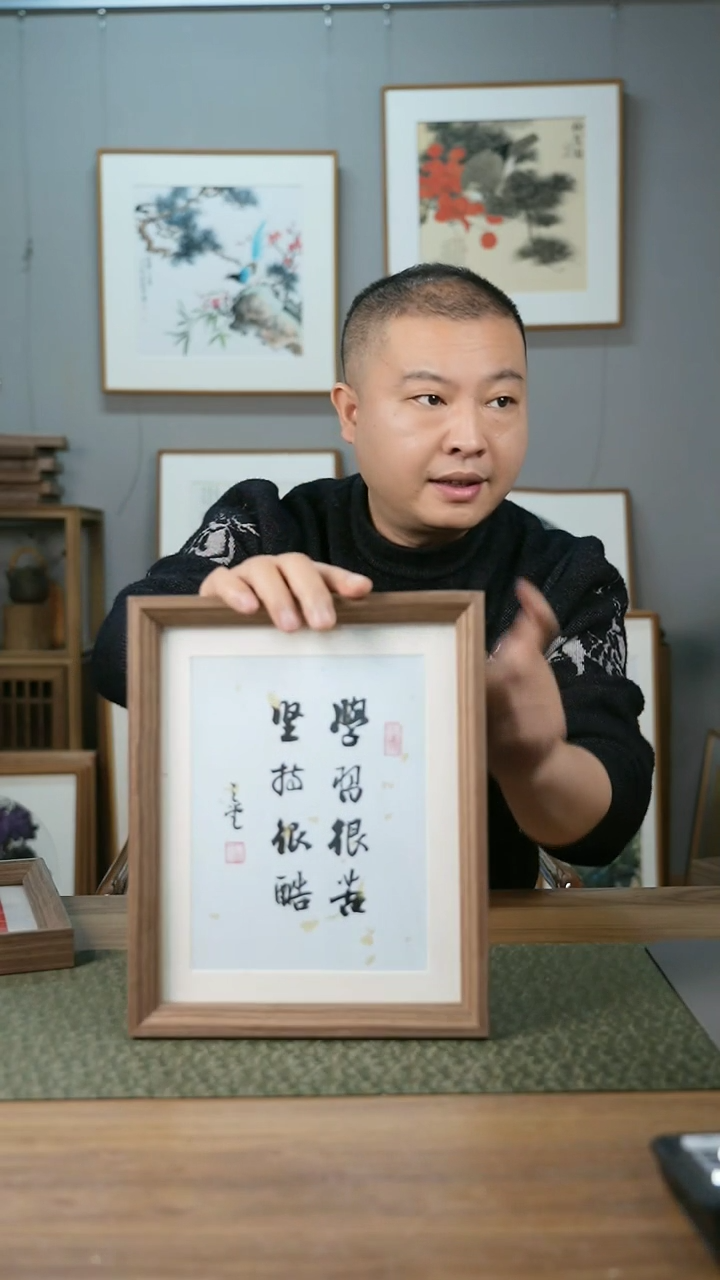 學習很苦
坚持很酷